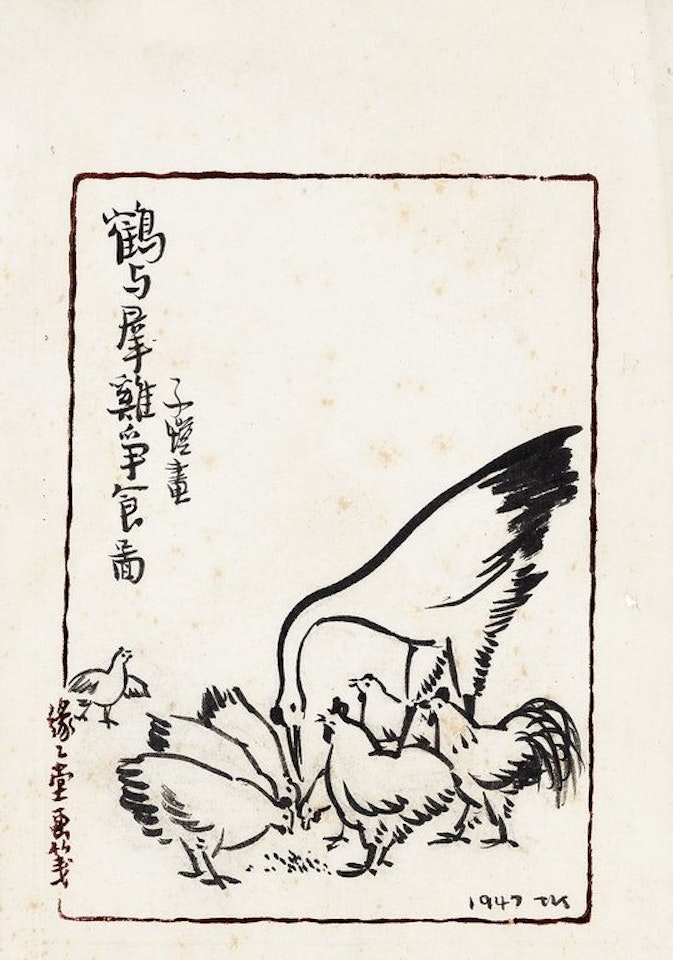 鶴与羣雞爭食啚
子愷畫
緣々堂画箋
1947 TK